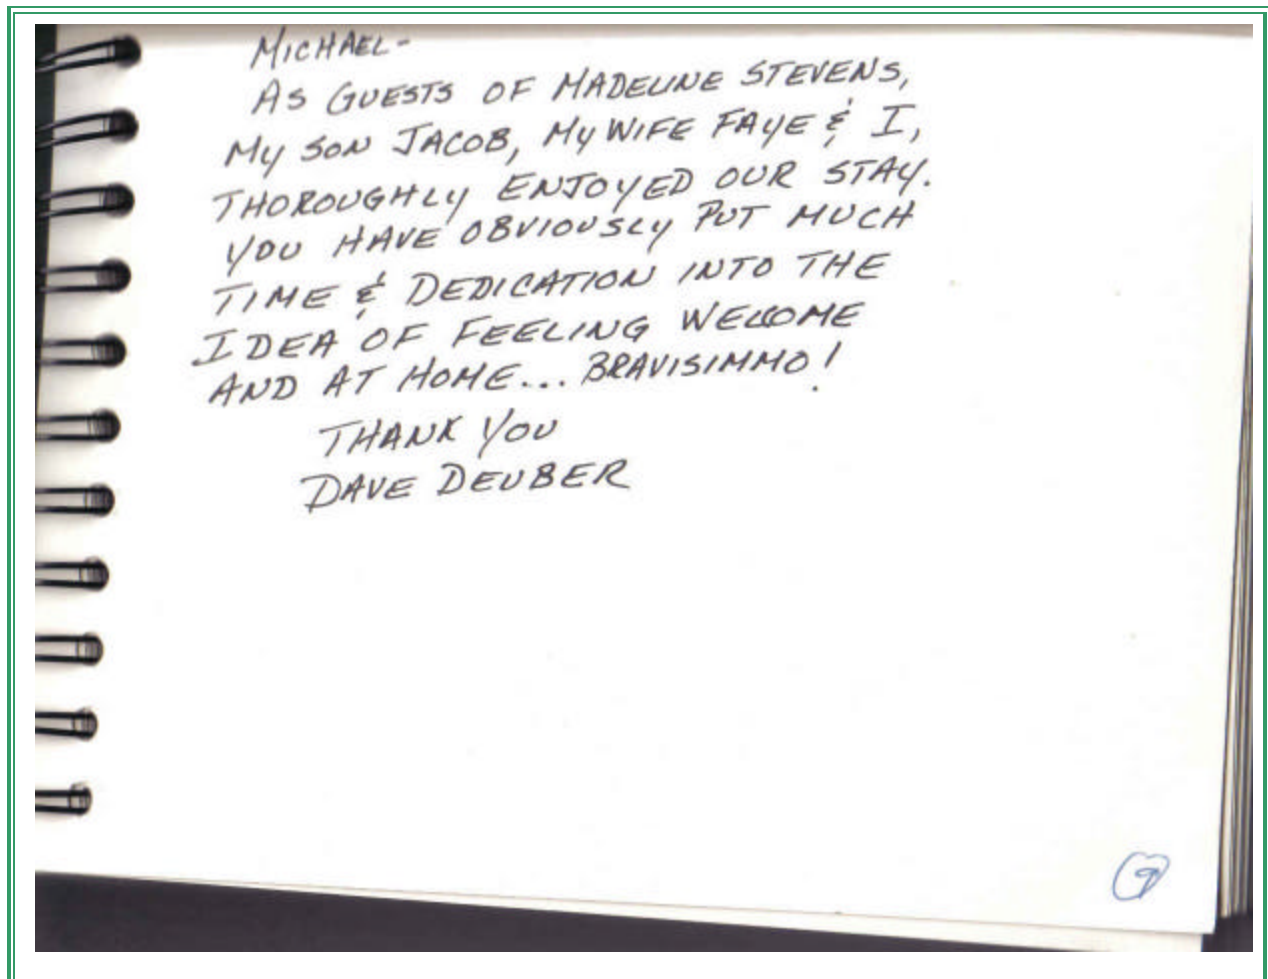 MICHAEL-
AS GUESTS OF MADELINE STEVENS,
MY SON JACOB, MY WIFE FAYE & I,
THOROUGHLY ENJOYED OUR STAY.
YOU HAVE OBVIOUSLY PUT MUCH
TIME & DEDICATION INTO THE
IDEA OF FEELING WELCOME
AND AT HOME... BRAVISIMMO!
THANK YOU
DAVE DEUBER
9